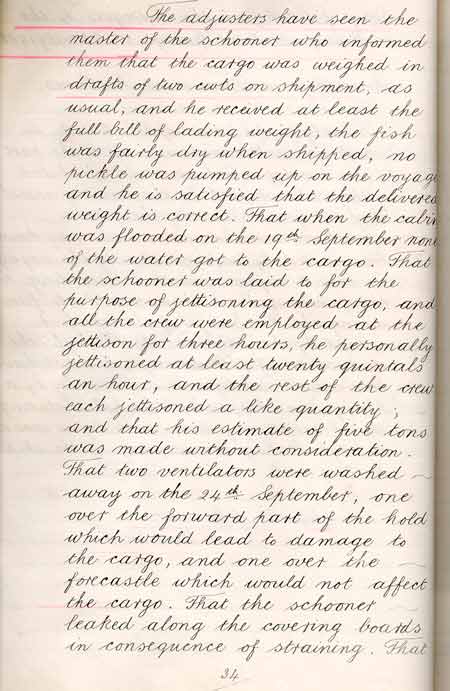 The adjusters have seen the
master of the schooner who informed
them that the cargo was weighed in
drafts of two cwts on shipment, as
usual, and he received at least the
full bill of lading weight, the fish
was fairly dry when shipped, no
pickle was pumped up on the voyage
and he is satisfied that the delivered
weight is correct. That when the cabin
was flooded on the 19th September none
of the water got to the cargo. That
the schooner was laid to for the
purpose of jettisoning the cargo, and
all the crew were employed at the
jettison for three hours, he personally
jettisoned at least twenty quintals
an hour, and the rest of the crew
each jettisoned a like quantity;
and that his estimate of five tons
was made without consideration.
That two ventilators were washed
away on the 24th September, one
over the forward part of the hold
which would lead to damage to
the cargo, and one over the
forecastle which would not affect
the cargo. That the schooner
leaked along the covering boards
in consequence of straining. That
34